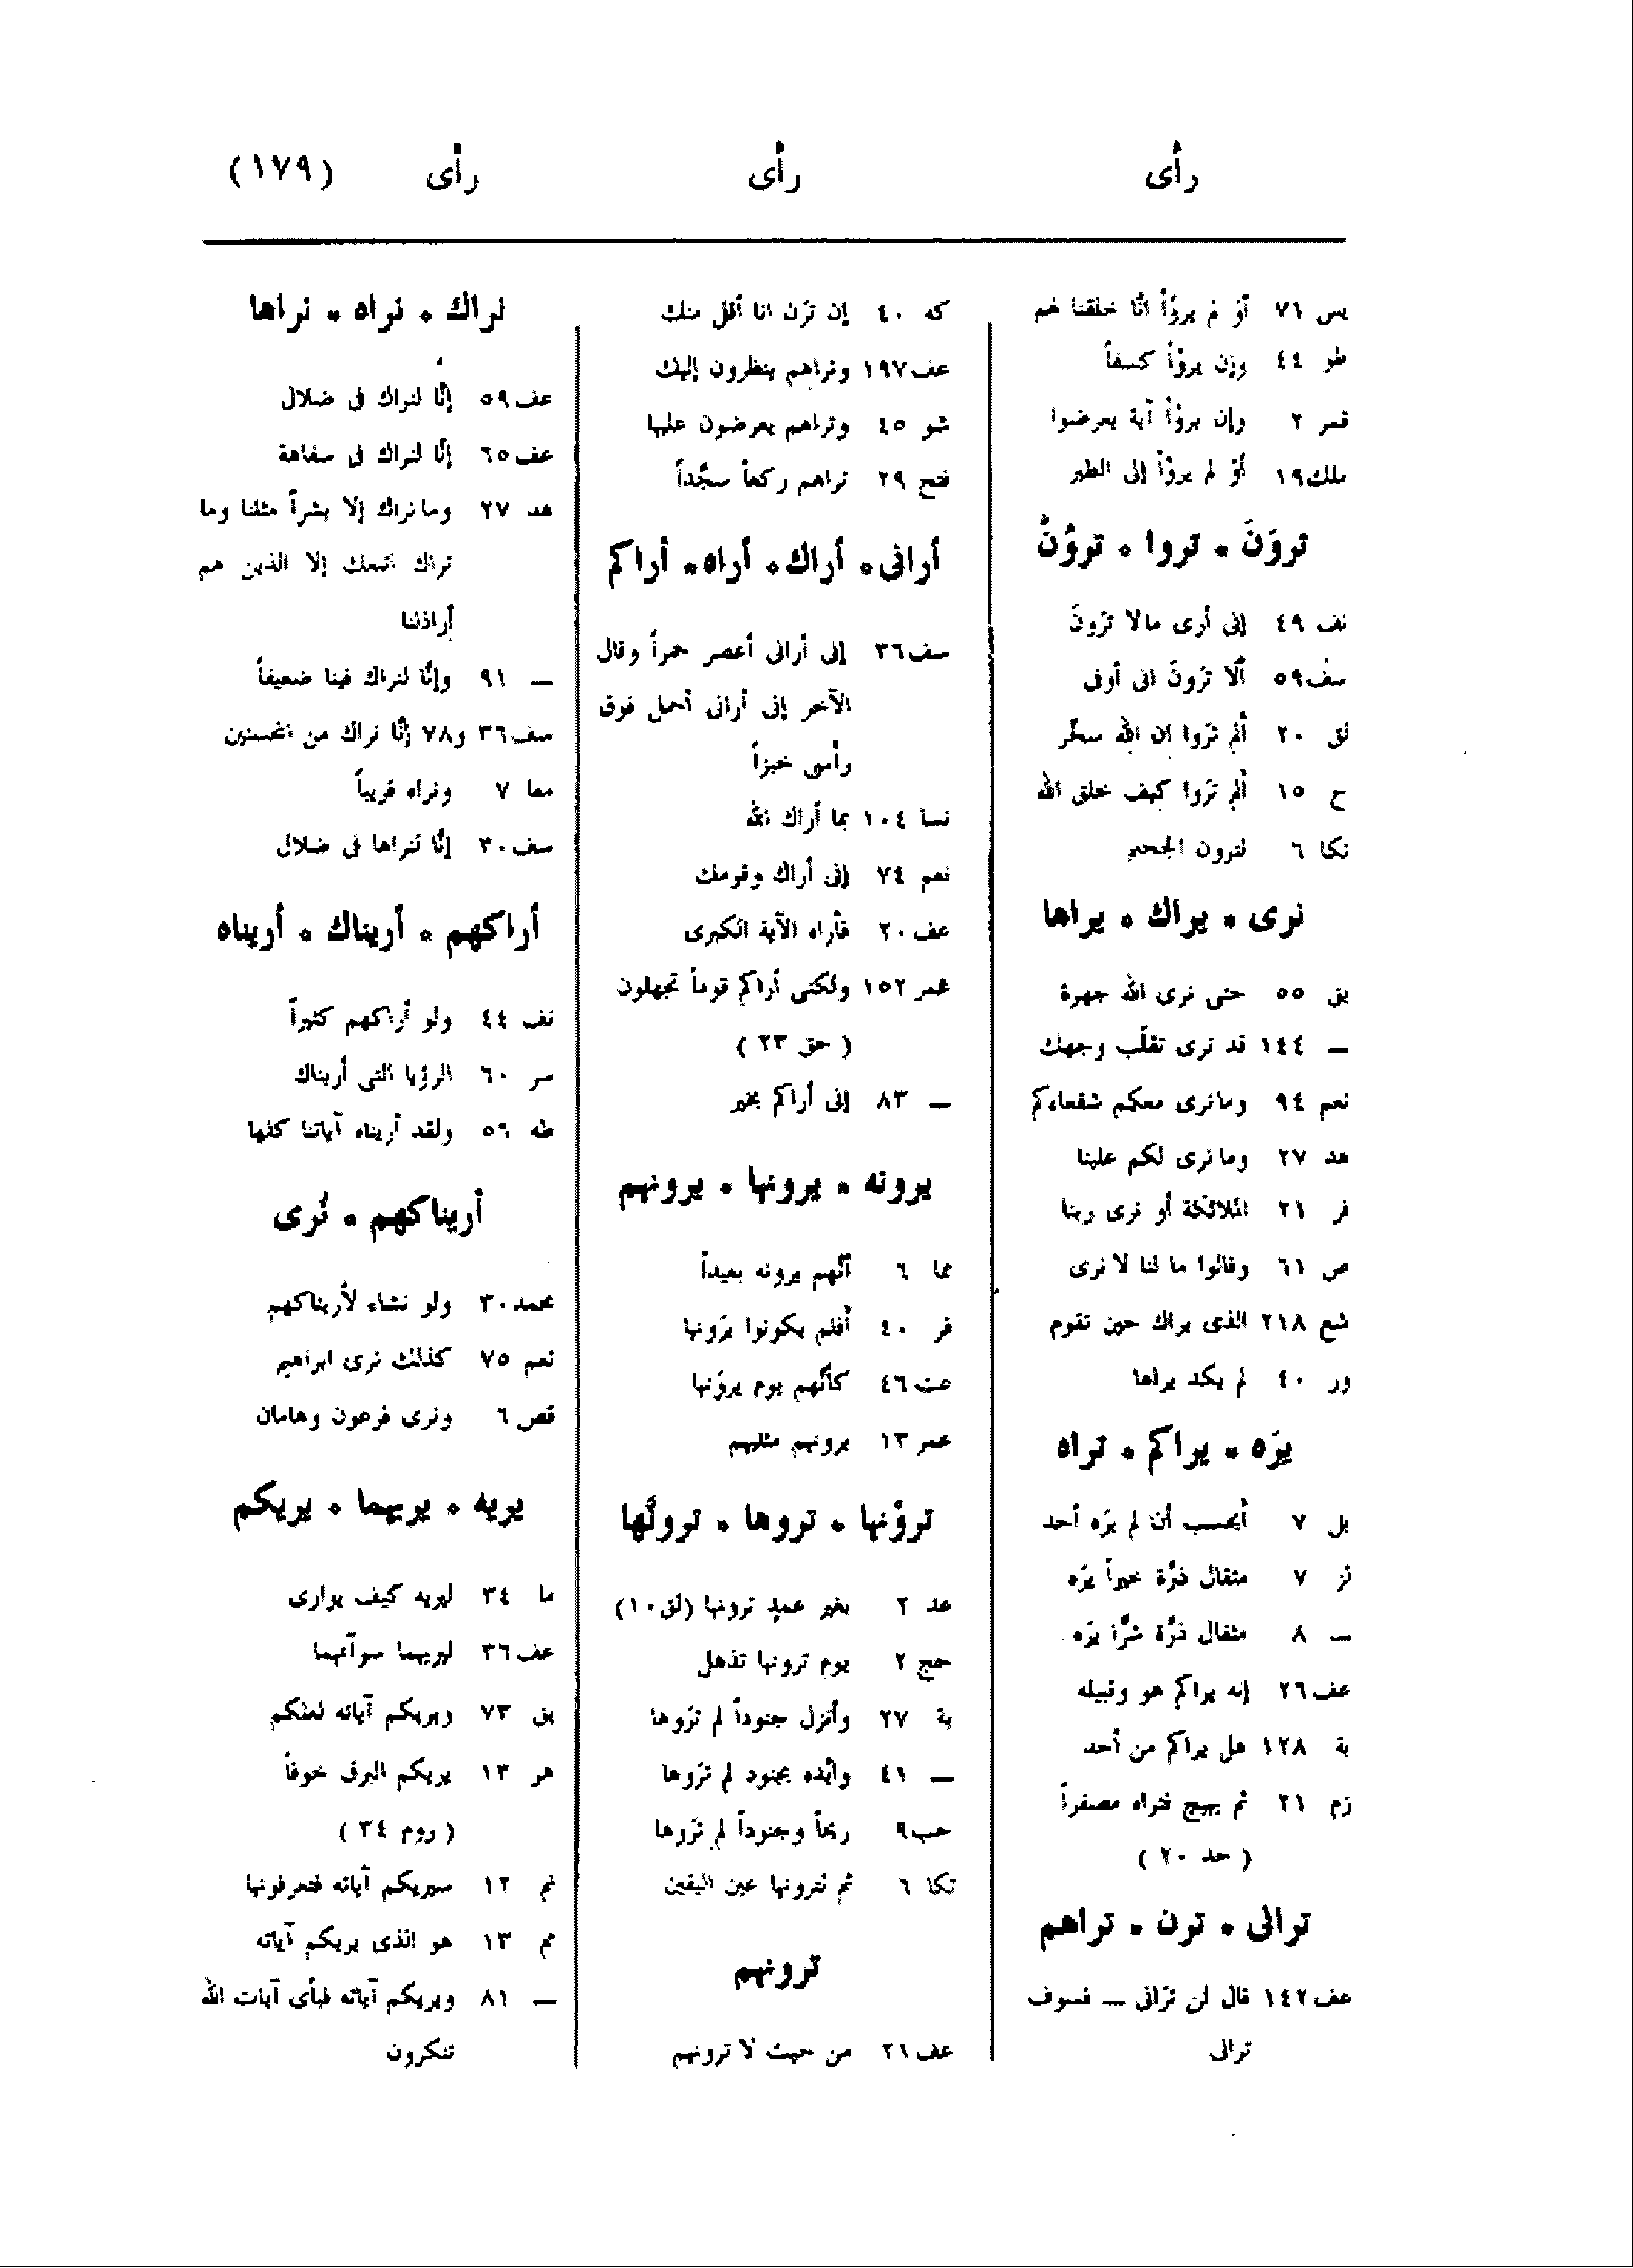 رأى رأى رأى (١٧٩)
يس ٧١ أوَ لم يروْاْ انَّا خلقنا لهم
طو ٤٤ وإن يروْاْ كسفاً
قمر ٢ وإن يروْاْ آية يعرضوا
ملك ١٩ أوَ لم يروْاْ إلى الطير
تروَنَ * تروا * تروُنَّ
نف ٤٩ إنى أرى مالا ترَونَ
سف ٥٩ ألا ترَونَ انى أوفى
لق ٢٠ ألم ترَوا ان الله سخَّر
ح ١٥ ألم ترَوا كيف خلق الله
تكا ٦ لترون الجحيم
نرى * يراك * يراها
بق ٥٥ حتى نرى الله جهرة
— ١٤٤ قد نرى تقلّب وجهك
نعم ٩٤ وما نرى معكم شفعاءكم
هد ٢٧ وما نرى لكم علينا
فر ٢١ الملائكة أو نرى ربنا
ص ٦١ وقالوا ما لنا لا نرى
شع ٢١٨ الذى يراك حين تقوم
ور ٤٠ لم يكد يراها
يرَه * يراكم * تراه
بل ٧ أيحسب أن لم يرَه أحد
لز ٧ مثقال ذرَّة خيراً يرَه
— ٨ مثقال ذرَّة شرَّا يرَه
عف ٢٦ إنه يراكم هو وقبيله
بة ١٢٨ هل يراكم من أحد
زم ٢١ ثم يهيج فتراه مصفراً
( حد ٢٠ )
ترانى * ترن * تراهم
عف ١٤٢ قال لن ترَانى — فسوف
ترانى
كه ٤٠ إن ترَن انا أقل منك
عف ١٩٧ وتراهم ينظرون إليك
شو ٤٥ وتراهم يعرضون عليها
فتح ٢٩ تراهم ركعاً سجَّداً
أرانى * أراك * أراه * أراكم
سف ٣٦ إنى أرانى أعصر خمراً وقال
الآخر إنى أرانى أحمل فوق
رأسى خبزاً
نسا ١٠٤ بما أراك الله
نعم ٧٤ إنى أراك وقومك
عف ٢٠ فأراه الآية الكبرى
عمر ١٥٢ ولكنى أراكم قوماً تجهلون
( حق ٢٣ )
— ٨٣ إنى أراكم بخير
يرونه * يرونها * يرونهم
معا ٦ انَّهم يرونه بعيداً
فر ٤٠ أفلم يكونوا يرَونها
عت ٤٦ كأنَّهم يوم يروَنها
عمر ١٣ يرونهم مثليهم
تروْنها * تروها * ترونَّها
عد ٢ بغير عمدٍ ترونها (لق ١٠)
حج ٢ يوم ترونها تذهل
بة ٢٧ وأنزل جنوداً لم ترَوها
— ٤١ وأيَّده بجنود لم ترَوها
حب ٩ ريحاً وجنوداً لم ترَوها
تكا ٦ ثم لترونها عين اليقين
ترونهم
عف ٢٦ من حيث لا ترونهم
نراك * نراه * نراها
عف ٥٩ إنَّا لنراك فى ضلال
عف ٦٥ إنَّا لنراك فى سفاهة
هد ٢٧ وما نراك إلا بشراً مثلنا وما
نراك اتبعك إلا الذين هم
أراذلنا
— ٩١ وإنَّا لنراك فينا ضعيفاً
سف ٣٦ و٧٨ إنَّا نراك من المحسنين
معا ٧ ونراه قريباً
سف ٣٠ إنَّا لنراها فى ضلال
أراكهم * أريناك * أريناه
نف ٤٤ ولو أراكهم كثيراً
سر ٦٠ الرؤيا التى أريناك
طه ٥٦ ولقد أريناه آياتنا كلها
أريناكهم * نُرى
محمد ٣٠ ولو نشاء لأريناكهم
نعم ٧٥ كذلك نرى ابراهيم
قص ٦ ونرى فرعون وهامان
يريه * يريهما * يريكم
ما ٣٤ ليريه كيف يوارى
عف ٣٦ ليريهما سوآتهما
بق ٧٣ ويريكم آياته لعلكم
هر ١٣ يريكم البرق خوفاً
( روم ٢٤ )
نم ١٢ سيريكم آياته فتعرفونها
مم ١٣ هو الذى يريكم آياته
— ٨١ ويريكم آياته فبأى آيات الله
تنكرون